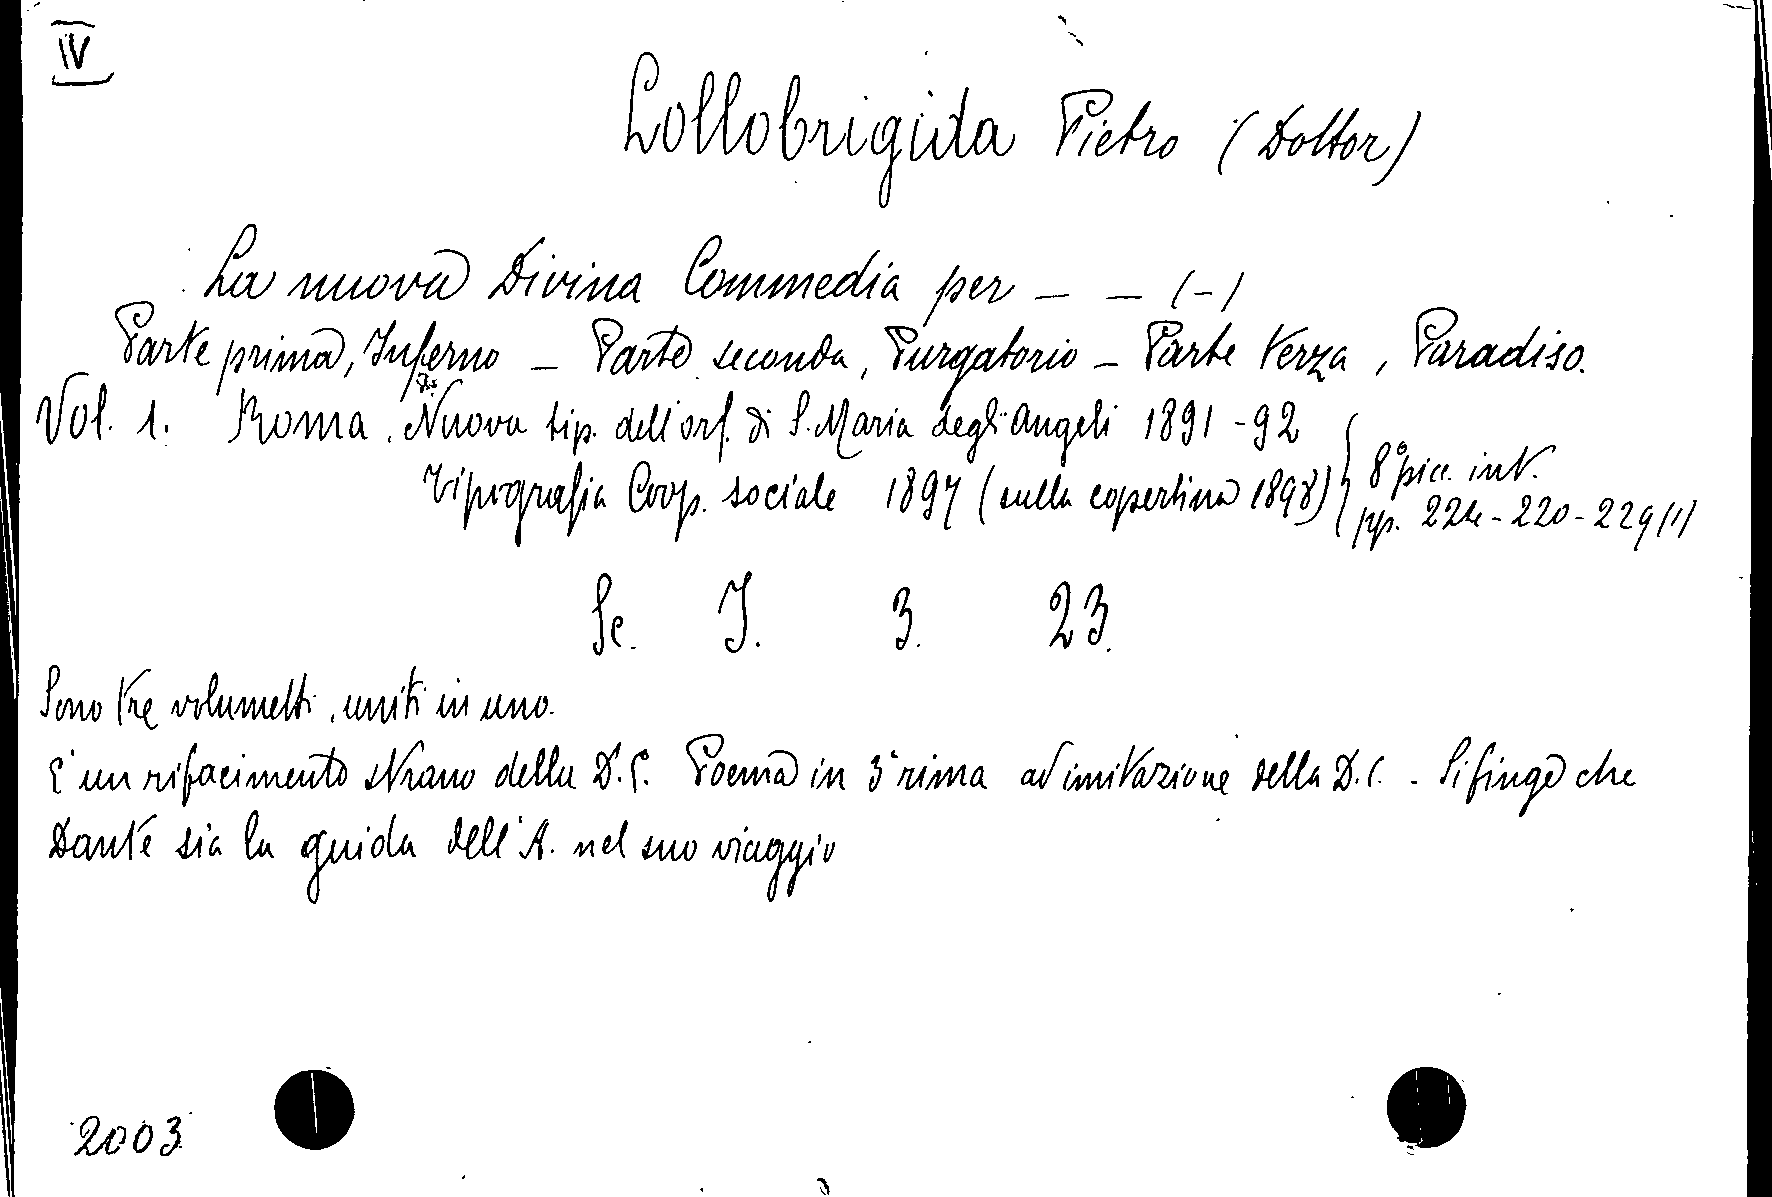 IV
Lollobrigida Pietro (Dottor)
La nuova Divina Commedia per — — (-)
Parte prima, Inferno — Parte seconda, Purgatorio — Parte terza, Paradiso.
Vol. 1. Roma. Nuova tip. dell'orf. di S. Maria degli Angeli 1891-92
Tipografia Coop. sociale 1897 (sulla copertina 1898)
8° picc. int.
pp. 224-220-229 (1)
Sc. I. 3. 23.
Sono tre volumetti, uniti in uno.
È un rifacimento strano della D.C. Poema in 3ª rima ad imitazione della D.C. - Si finge che
Dante sia la guida dell'A. nel suo viaggio
2003